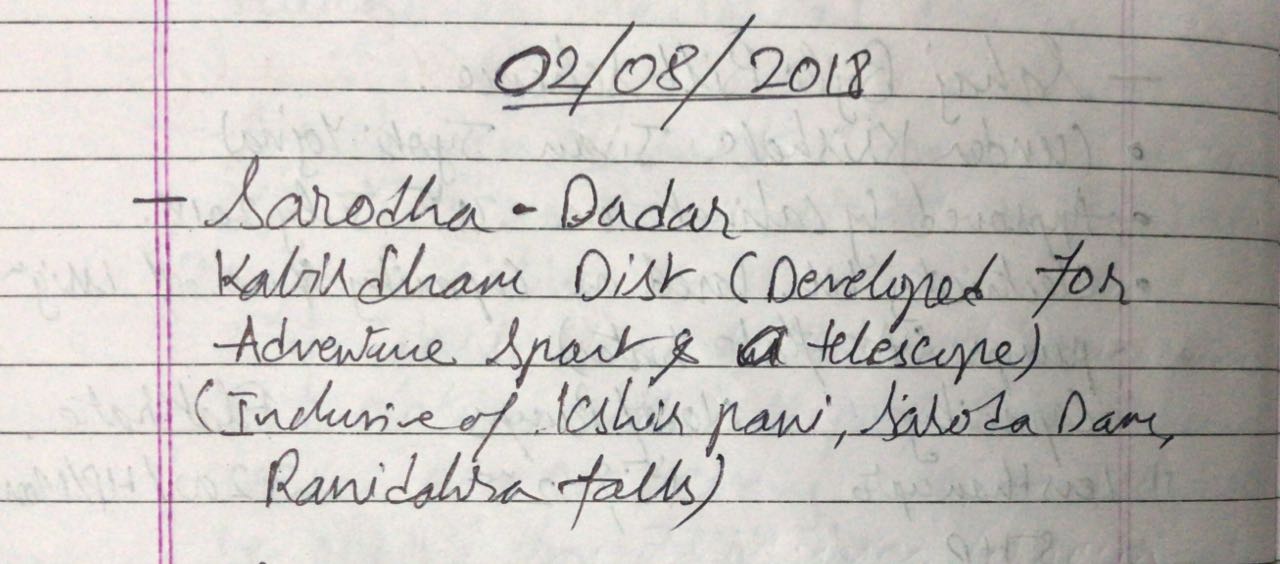 02/08/2018
- Sarodha - Dadar
Kabirdham Dist (Developed for
Adventure Sport & a telescope)
(Inclusive of Kshir pani, Saroda Dam,
Ranidahra falls)